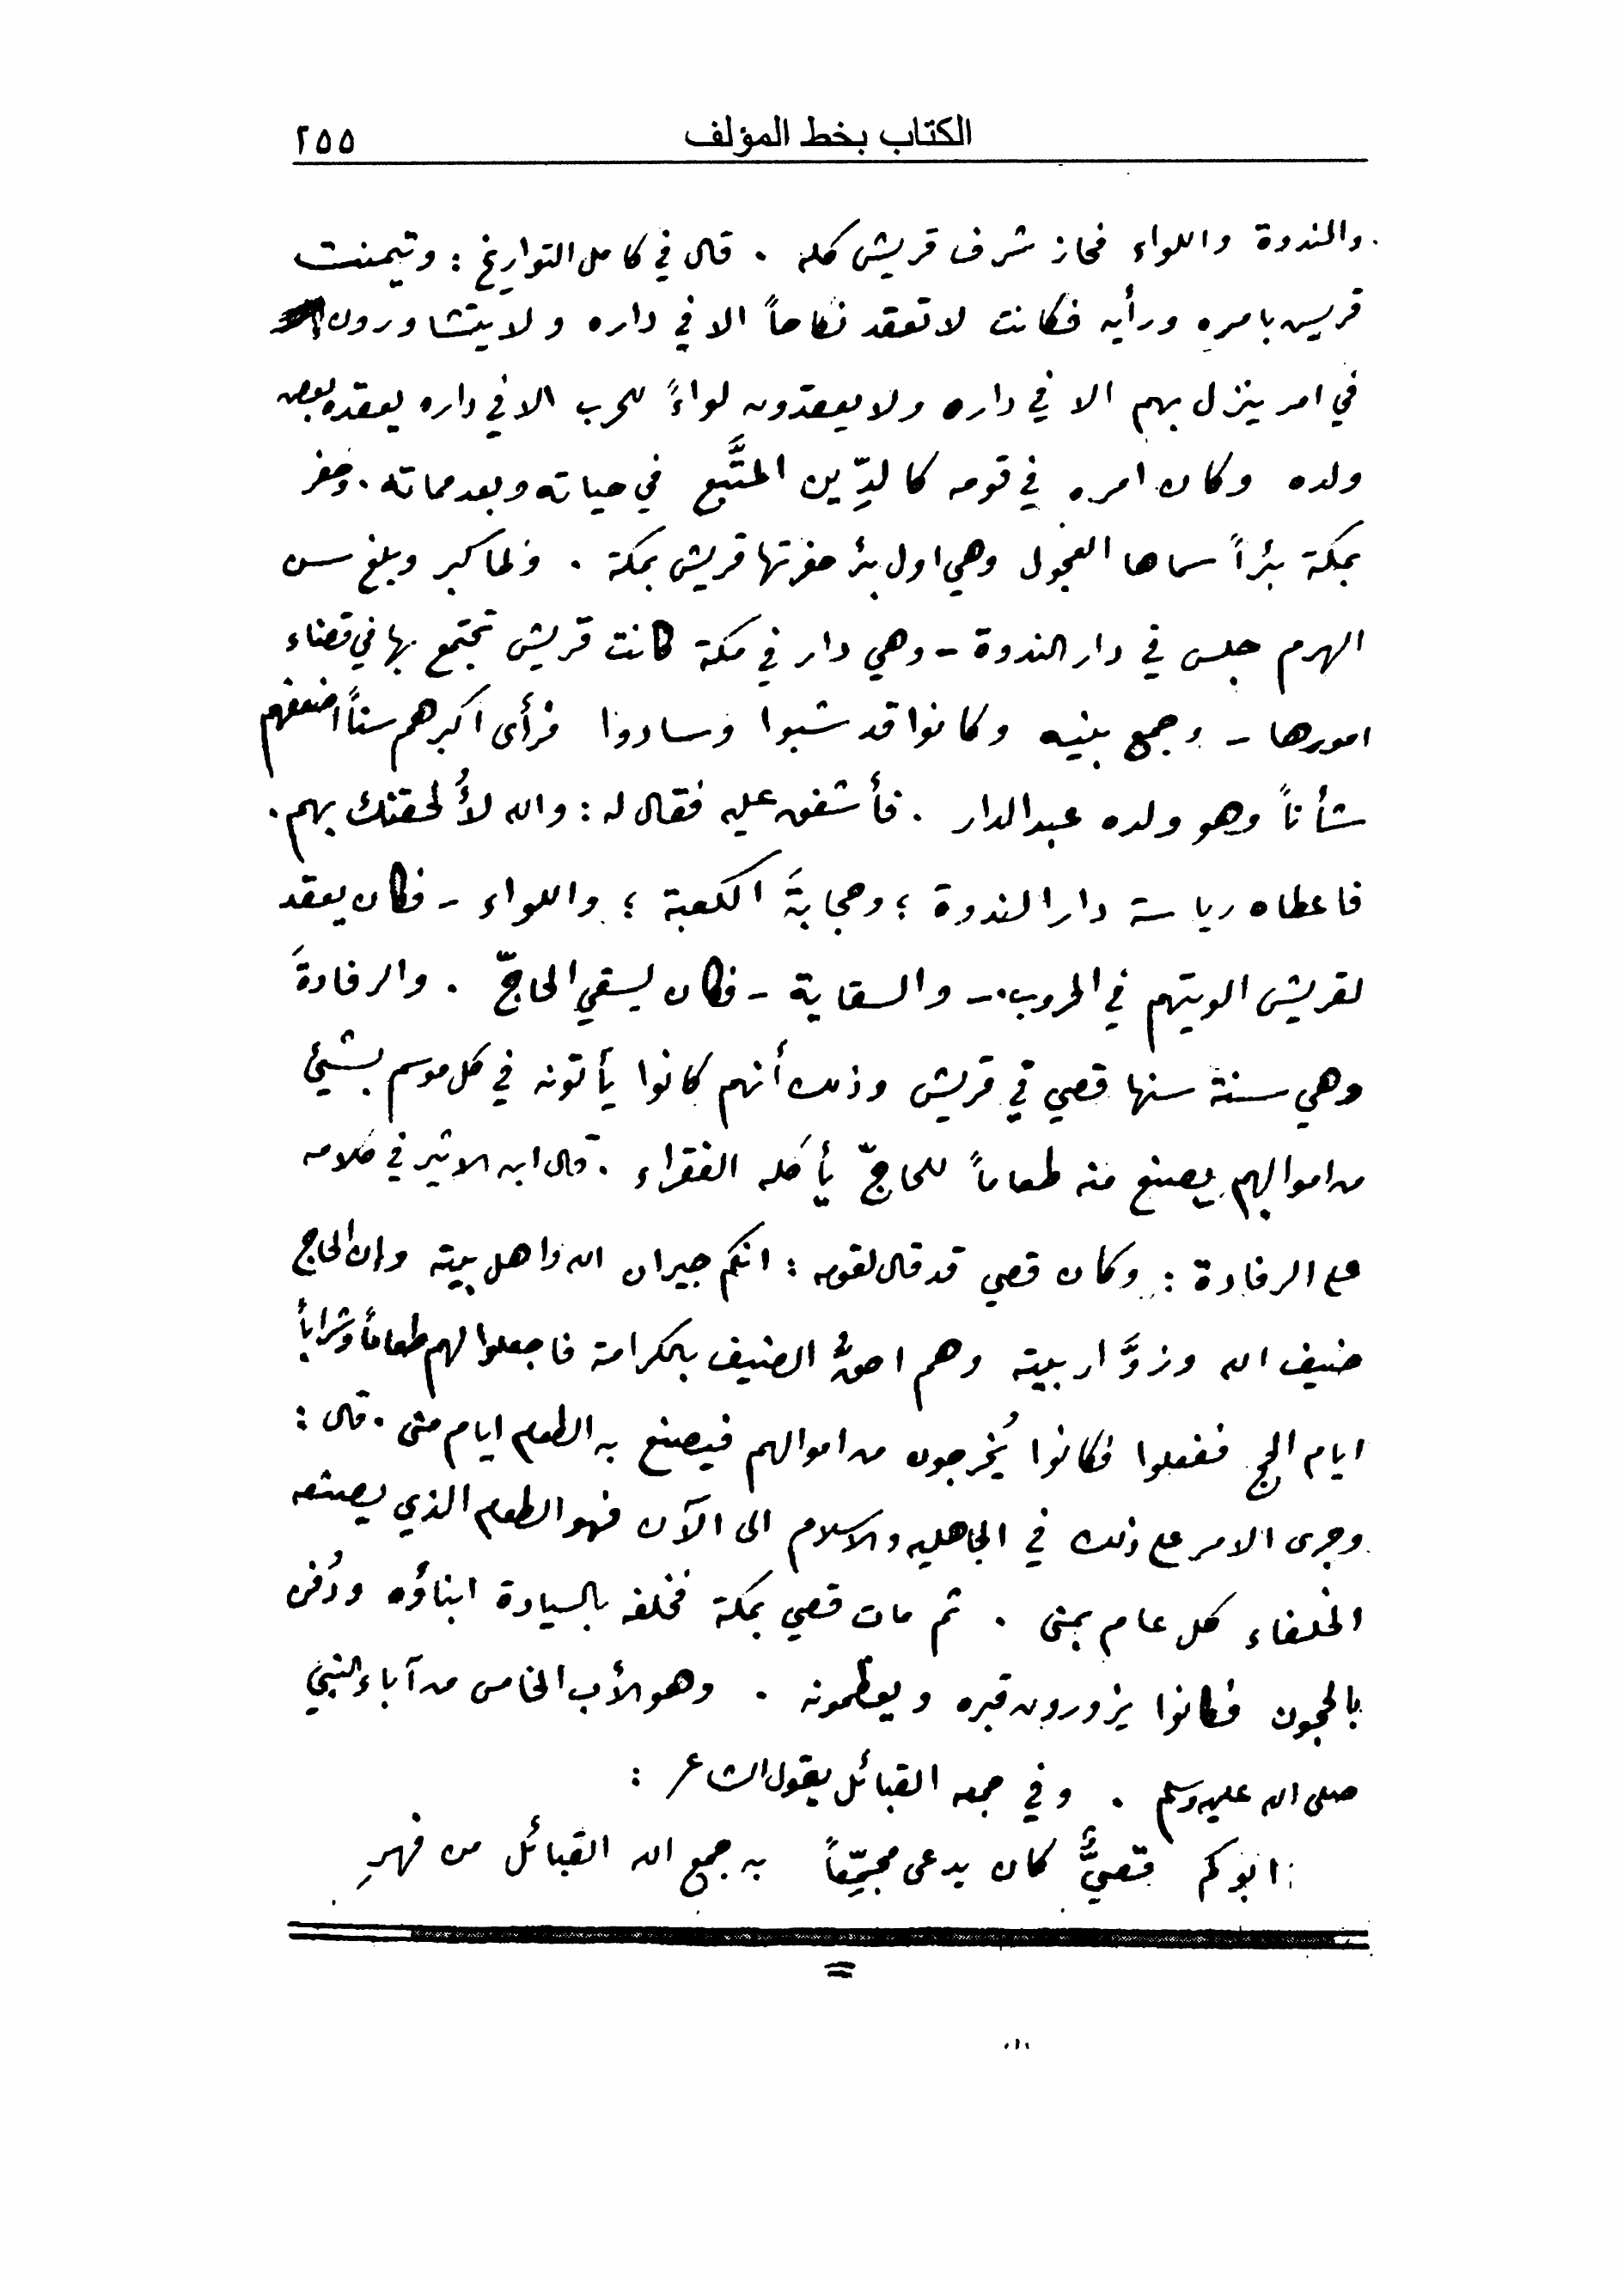 الكتاب بخط المؤلف ٢٥٥
والندوة واللواء فحاز شرف قريش كله . قال في كامل التواريخ : وتيمنت
قريش بامره ورأيه فكانت لا تعقد نكاحاً الا في داره ولا يتشاورون
في امر ينزل بهم الا في داره ولا يعقدون لواءً للحرب الا في داره يعقده بعض
ولده وكان امره في قومه كالدِّين المتَّبع في حياته وبعد مماته . وحفر
بمكة بئراً سماها العجول وهي اول بئر حفرتها قريش بمكة . ولما كبر وبلغ سن
الهرم جلس في دار الندوة - وهي دار في مكة كانت قريش تجتمع بها في قضاء
امورها - وجمع بنيه وكانوا قد شبوا وسادوا فرأى اكبرهم سناً اضعفهم
شأناً وهو ولده عبد الدار . فأشفق عليه فقال له : والله لأُلحقنك بهم .
فاعطاه رياسة دار الندوة ؛ وحجابةَ الكعبة ؛ واللواء - فكان يعقد
لقريش الويتهم في الحروب - والسقاية - فكان يسقي الحاجّ . والرفادةَ
وهي سنة سنها قصي في قريش وذلك أنهم كانوا يأتونه في كل موسم بشيئ
من اموالهم يصنع منه طعاماً للحاجّ يأكله الفقراء . قال ابن الاثير في كلامه
على الرفادة : وكان قصي قد قال لقومه : انكم جيران الله واهل بيته وان الحاج
ضيف الله وزوَّار بيته وهم احقُّ الضيف بالكرامة فاجعلوا لهم طعاماً وشراباً
ايام الحج ففعلوا فكانوا يُخرجون من اموالهم فيصنع به الطعام ايام منى . قال :
وجرى الامر على ذلك في الجاهليه والاسلام الى الآن فهو الطعام الذي يصنعه
الخلفاء كل عام بمنى . ثم مات قصي بمكة فخلفه بالسيادة ابناؤه ودُفن
بالحجون فكانوا يزورون قبره ويعظمونه . وهو الأب الخامس من آباء النبي
صلى الله عليه وسلم . وفي جمعه القبائل يقول الشاعر :
ابوكم قصيٌّ كان يدعى مجمِّعاً به جمع الله القبائل من فهرِ